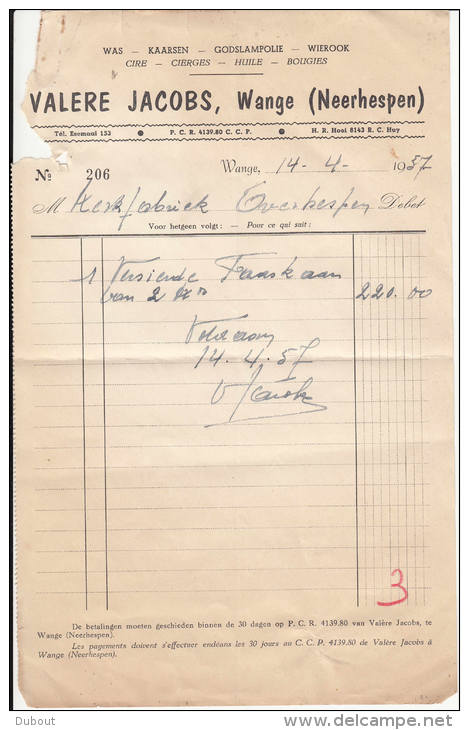 WAS — KAARSEN — GODSLAMPOLIE — WIEROOK
CIRE — CIERGES — HUILE — BOUGIES
VALERE JACOBS, Wange (Neerhespen)
Tél. Esemaal 153 ● P. C. R. 4139.80 C. C. P. ● H. R. Hoei 8143 R. C. Huy
No 206 Wange, 14-4-1957
M Kerkfabriek Overhespen Debet
Voor hetgeen volgt : — Pour ce qui suit :
1 Versierde Paaskaars
van 2 220.00
Voldaan
14.4.57
V Jacobs
3
De betalingen moeten geschieden binnen de 30 dagen op P. C. R. 4139.80 van Valère Jacobs, te
Wange (Neerhespen).
Les payements doivent s'effectuer endéans les 30 jours au C. C. P. 4139.80 de Valère Jacobs à
Wange (Neerhespen).
Dubout
delcampe.net